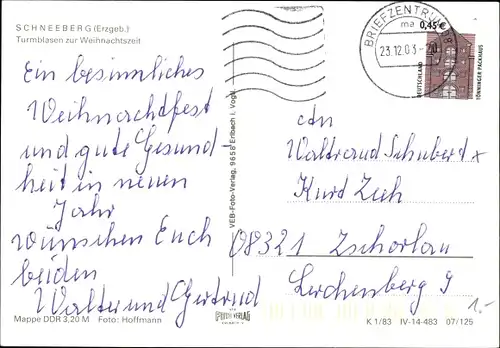 SCHNEEBERG (Erzgeb.)
Turmblasen zur Weihnachtszeit
Ein besinnliches
Weihnachtfest
und gute Gesund-
heit in neuen
Jahr
wünschen Euch
beiden
Walter und Gertrud
Mappe DDR 3,20 M Foto: Hoffmann
VEB-Foto-Verlag, 9658 Erlbach i. Vogtl.
BRIEFZENTRUM 08
ma
23.12.03 - 20
0,45 €
DEUTSCHLAND
TÖNNINGER PACKHAUS
An
Waltraud Schubert
Kurt Zieh
08321 Zschorlau
Lerchenberg 9
1.-
FOTO VERLAG
K 1/83 IV-14-483 07/125